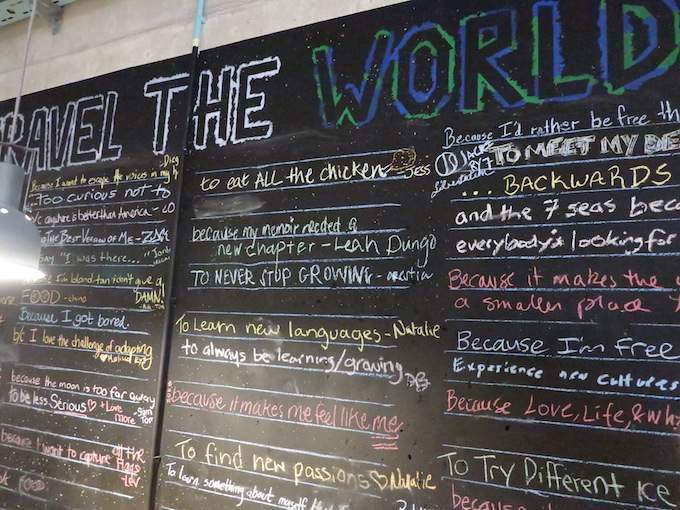 RAVEL THE WORLD
Because I want to escape the voices in my h
- Dieg
...Too curious not to
b/c anywhere is better than America - CD
THE BEST VERSION OF ME - ZIZA
SAY "I was there..."
I'm bland + an idon't give a
DAMN!
FOOD - chino
Because I got bored.
b/c I love the challenge of adapting
because the moon is too far away
To be less serious ♡ + Love more
- Sam Top
because I want to capture all the flags
- Lev
FOOD
to eat ALL the chicken
- Jess
because my memoir needed a
new chapter - Leah Dungo
TO NEVER STOP GROWING -
To Learn new languages - Natalie
to always be learning/growing
DB
because it makes me feel like me.
To find new passions ♡ Natalie
To learn something about myself
Because I'd rather be free th
TO MEET MY DE
... BACKWARDS
and the 7 seas beca
everybody's looking for
Because it makes the
a smaller place
Because I'm FREE
Experience new cultures
Because Love, Life, & wh
To Try Different ice
because